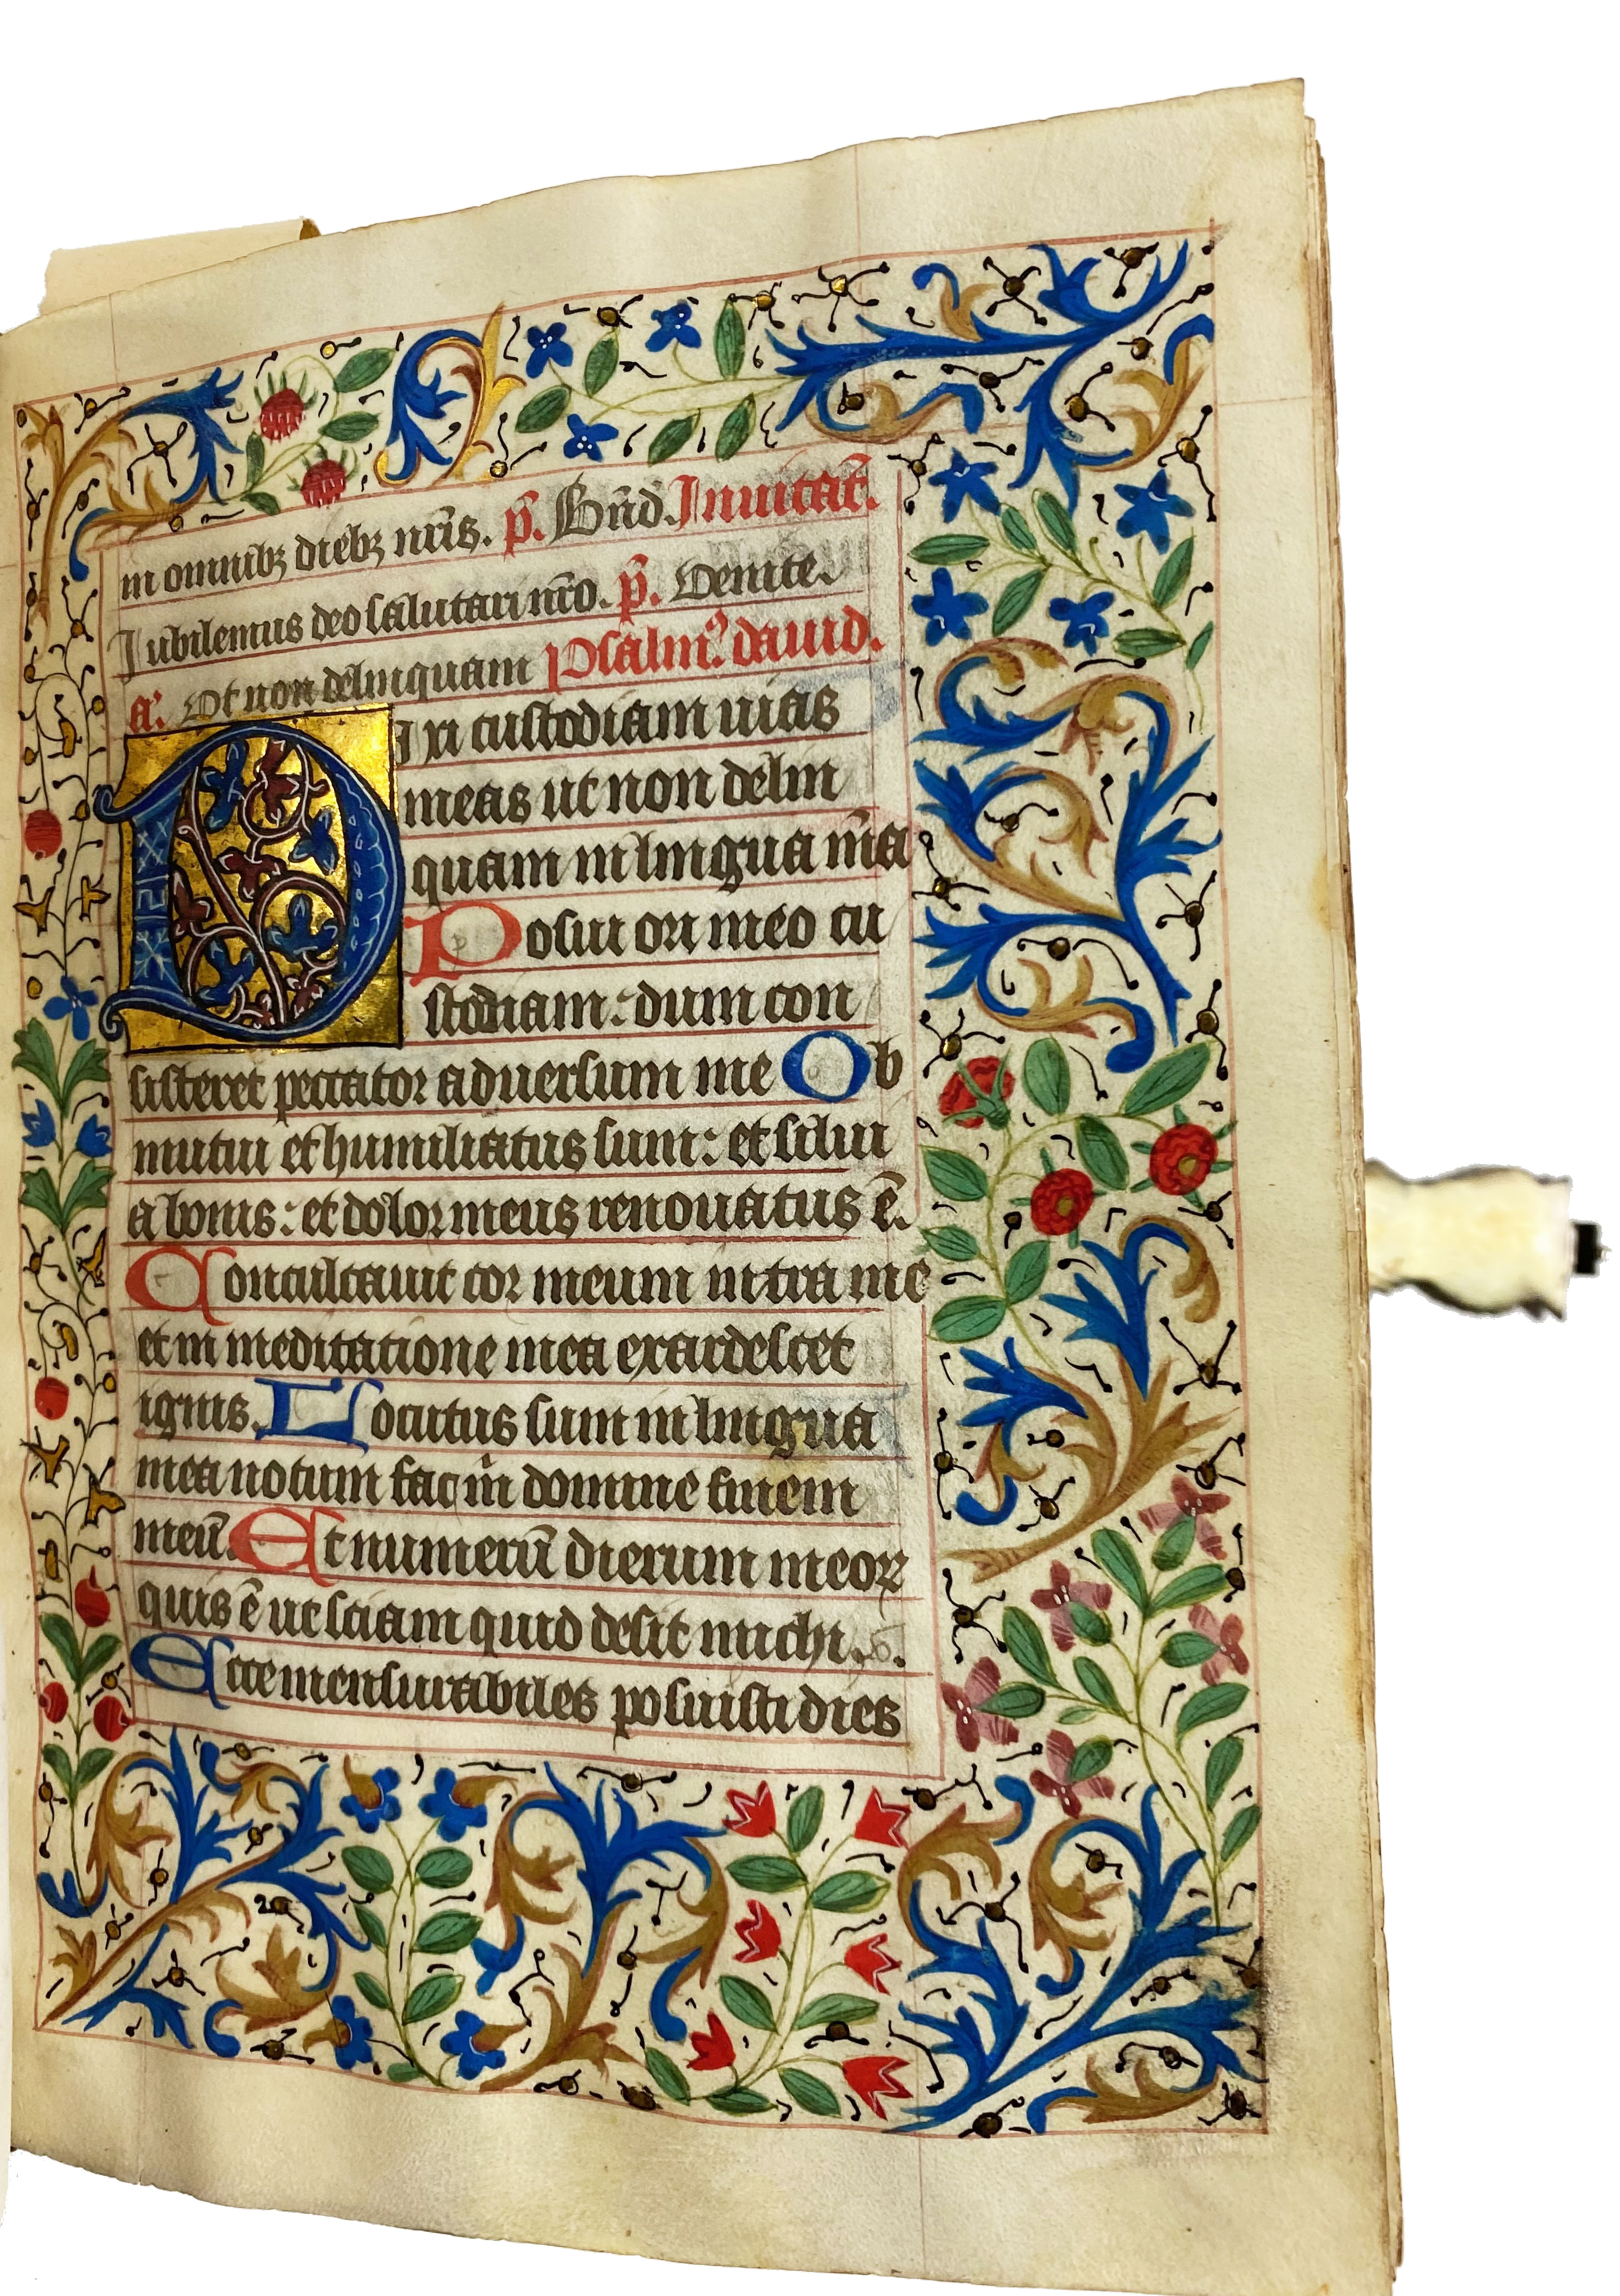 in omnibꝫ diebꝫ nr̄is. p̄. Bn̄d. Inuitat̄.
Iubilemus deo salutari nr̄o. p̄. Uenite.
a'. Ut non delinquam Psalm⁹. dauid.
Dixi custodiam uias
meas ut non delin
quam in lingua m̄a
Posui ori meo cu
stodiam: dum con
sisteret peccator aduersum me Ob
mutui et humiliatus sum: et silui
a bonis: et dolor meus renouatus ē.
Concaluit cor meum intra me
et in meditatione mea exardescet
ignis. Locutus sum in lingua
mea notum fac m̄ domine finem
meū. Et numerū dierum meoꝝ
quis ē ut sciam quid desit michi.
Ecce mensurabiles posuisti dies